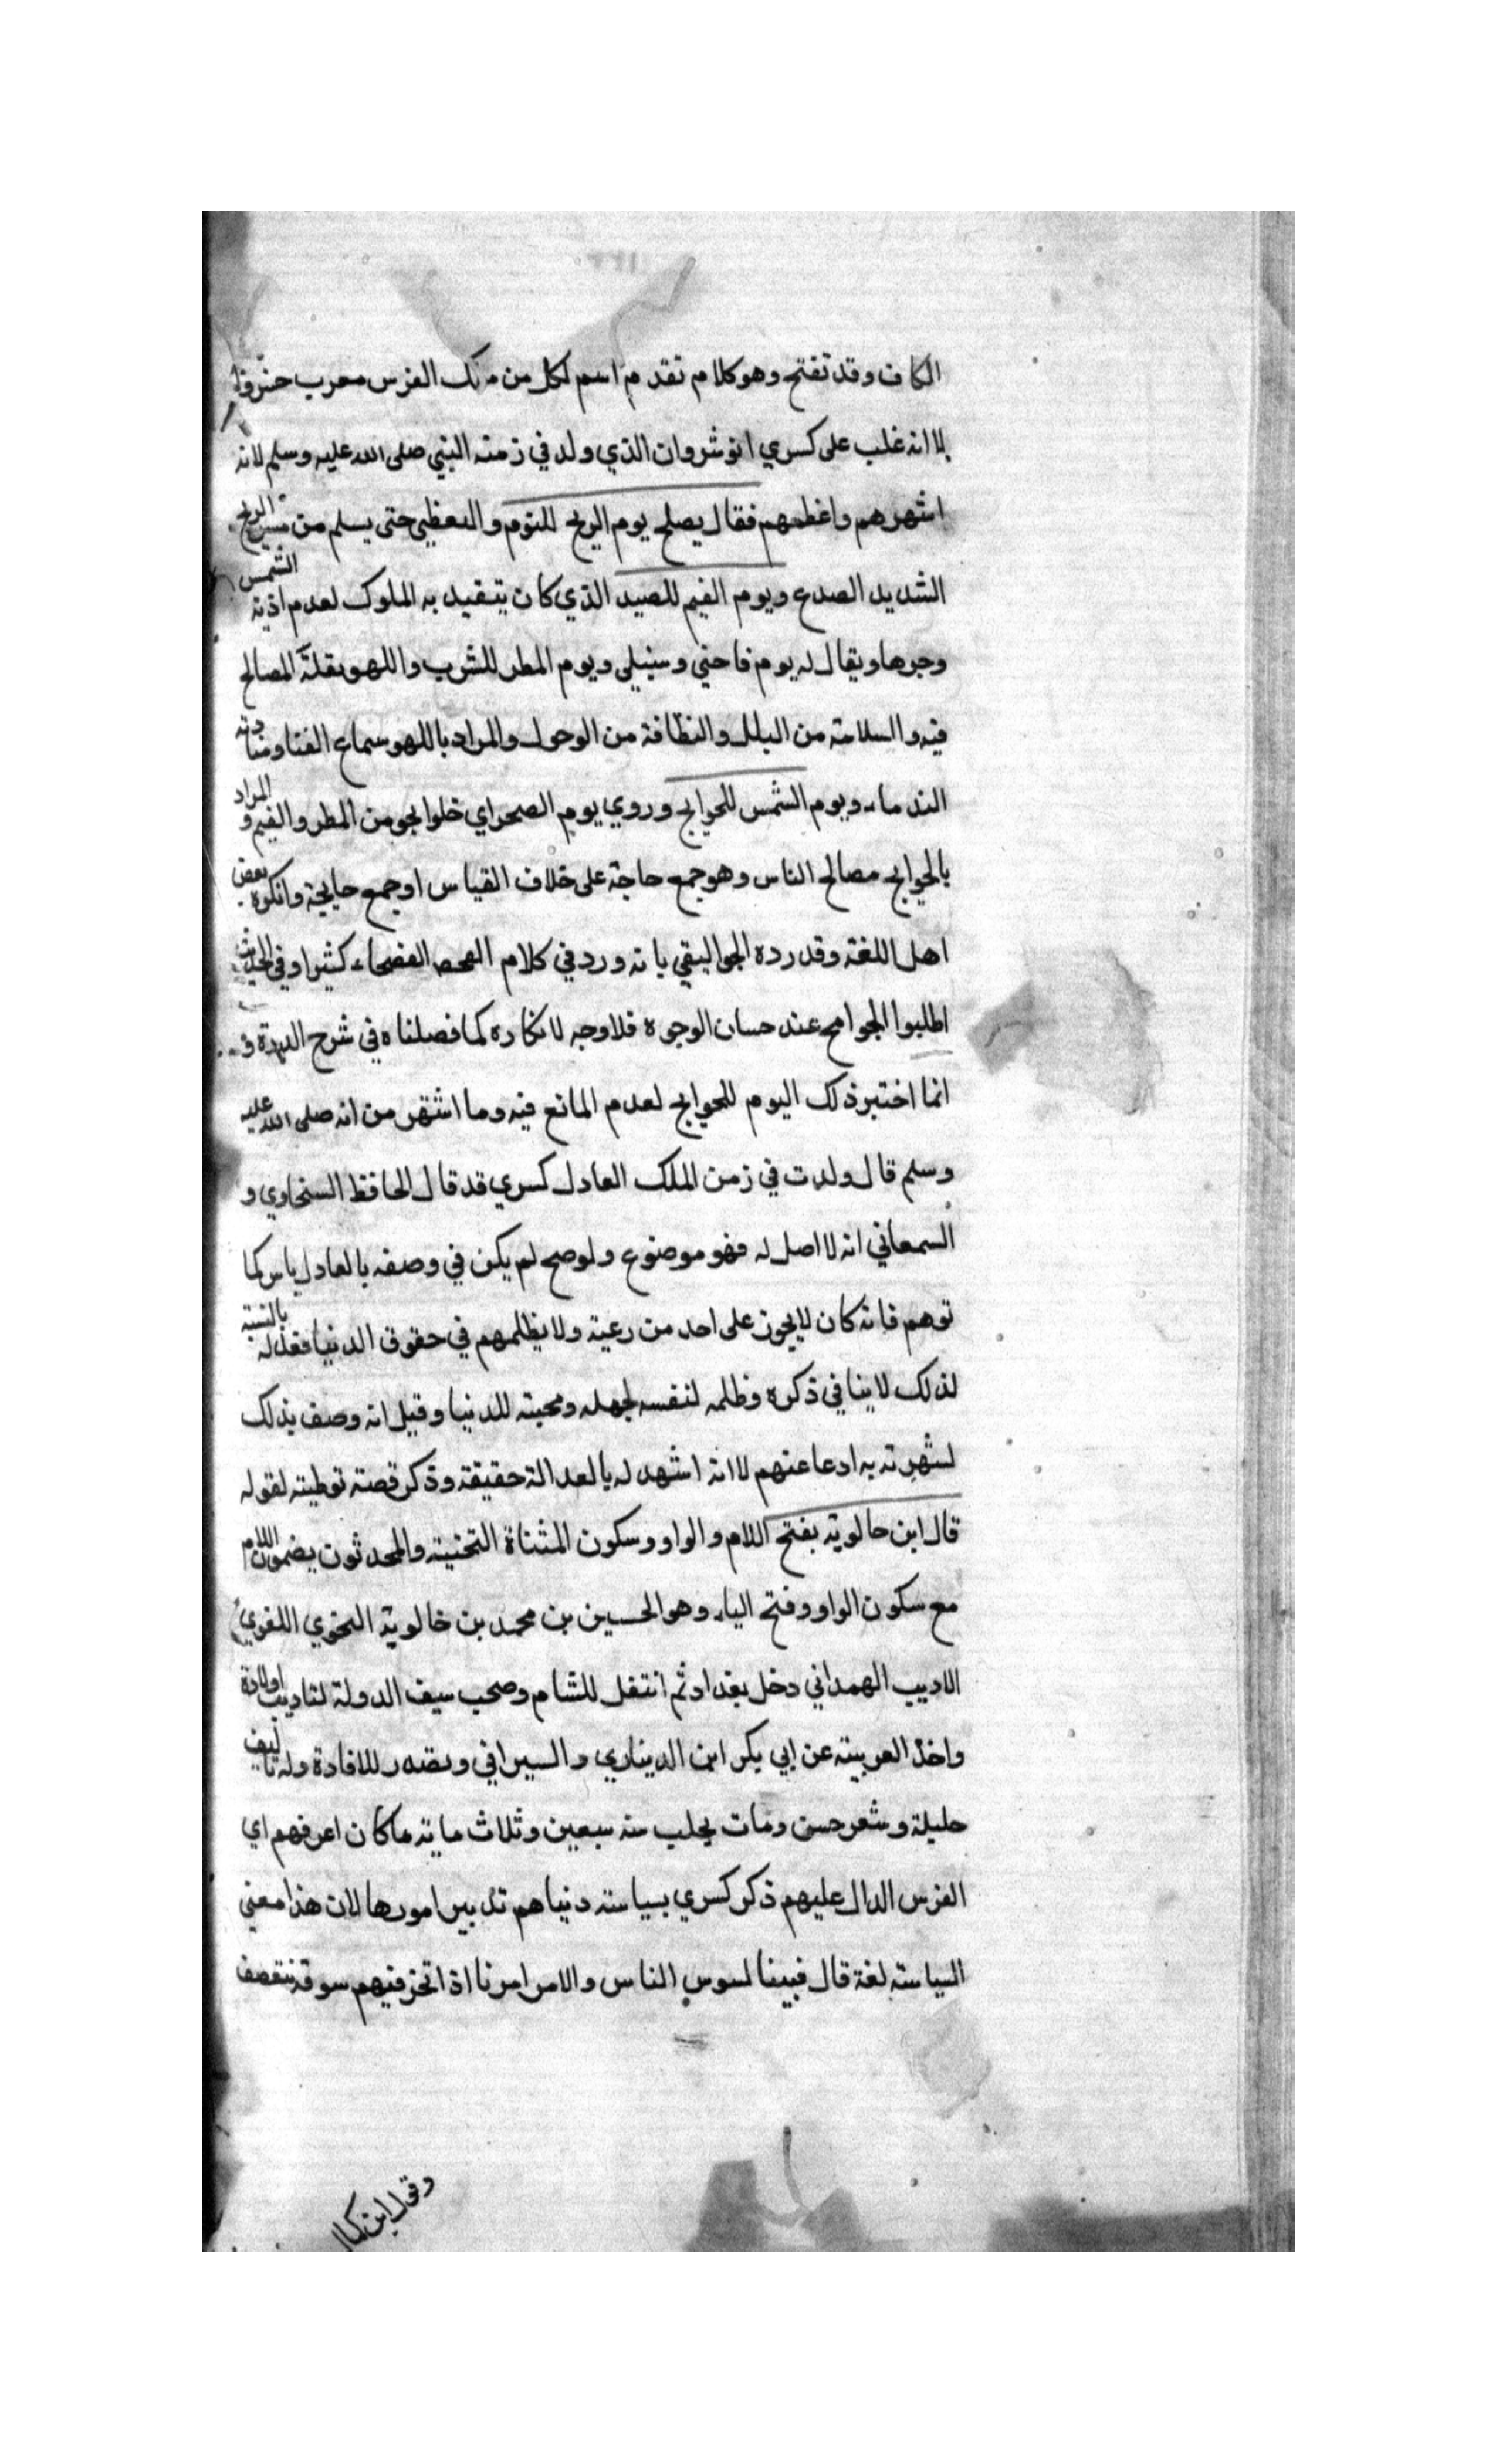 الكاف وقد تفتح وهو كلام تقدم اسم لكل من ملك الفرس معرب خسرو
الا انه غلب على كسري انوشروان الذي ولد في زمنه النبي صلى الله عليه وسلم لانه
اشهرهم واعظمهم فقال يصلح يوم الريح للنوم والتغطي حتى يسلم من الريح
الشديد الصدع ويوم الغيم للصيد الذي كان يتقيد به الملوك لعدم اذية الشمس
وحرها ويقال له يوم فاختي وسنيلي ويوم المطر للشرب واللهو بقلة المصالح
فيه والسلامة من البلل والنظافة من الوحول والمراد باللهو سماع الغنا ومنادته
الندماء ويوم الشمس للحوايج وروي يوم الصحو اي خلوا لجو من المطر والغيم والمراد
بالحوايج مصالح الناس وهو جمع حاجة على خلاف القياس او جمع حايجة وانكره بعض
اهل اللغة وقد رده الجواليقي بانه ورد في كلام الفصحاء كثيرا وفي الحديث
اطلبوا الحوايج عند حسان الوجوه فلا وجه لانكاره كما فصلناه في شرح الدرة و
انما اختير ذلك اليوم للحوايج لعدم المانع فيه وما اشتهر من انه صلى الله عليه
وسلم قال ولدت في زمن الملك العادل كسري قد قال الحافظ السخاوي و
السمعاني انه لا اصل له فهو موضوع ولو صح لم يكن في وصفه بالعادل باس كما
توهم فانه كان لا يجوز على احد من رعيته ولا يظلمهم في حقوق الدنيا فعدله بالنسبة
لذلك لا ينافي ذكره وظلمه لنفسه لجهله ومحبته للدنيا وقيل انه وصف بذلك
لشهرته به ادعا عنهم لا انه اشهد له بالعدالة حقيقة وذكر قصته توطيئة لقوله
قال ابن خالويه بفتح اللام والواو وسكون المثناة التحتية والمحدثون يضمون اللام
مع سكون الواو وفتح الياء وهو الحسين بن محمد بن خالوية النحوي اللغوي
الاديب الهمداني دخل بغداد ثم انتقل للشام وصحب سيف الدولة لتاديب اولاده
واخذ العربية عن ابي بكر ابن الديناري والسيرافي وتصدر للافادة وله تاليف
جليلة وشعر حسن ومات بحلب سنه سبعين وثلاث ماية ما كان اعرفهم اي
الفرس الدال عليهم ذكر كسري بسياسة دنياهم تدبير امورها لان هذا معني
السياسة لغة قال فبينا نسوس الناس والامر امرنا اذا نحن فيهم سوقة نتقصف
وقول ابن كمال